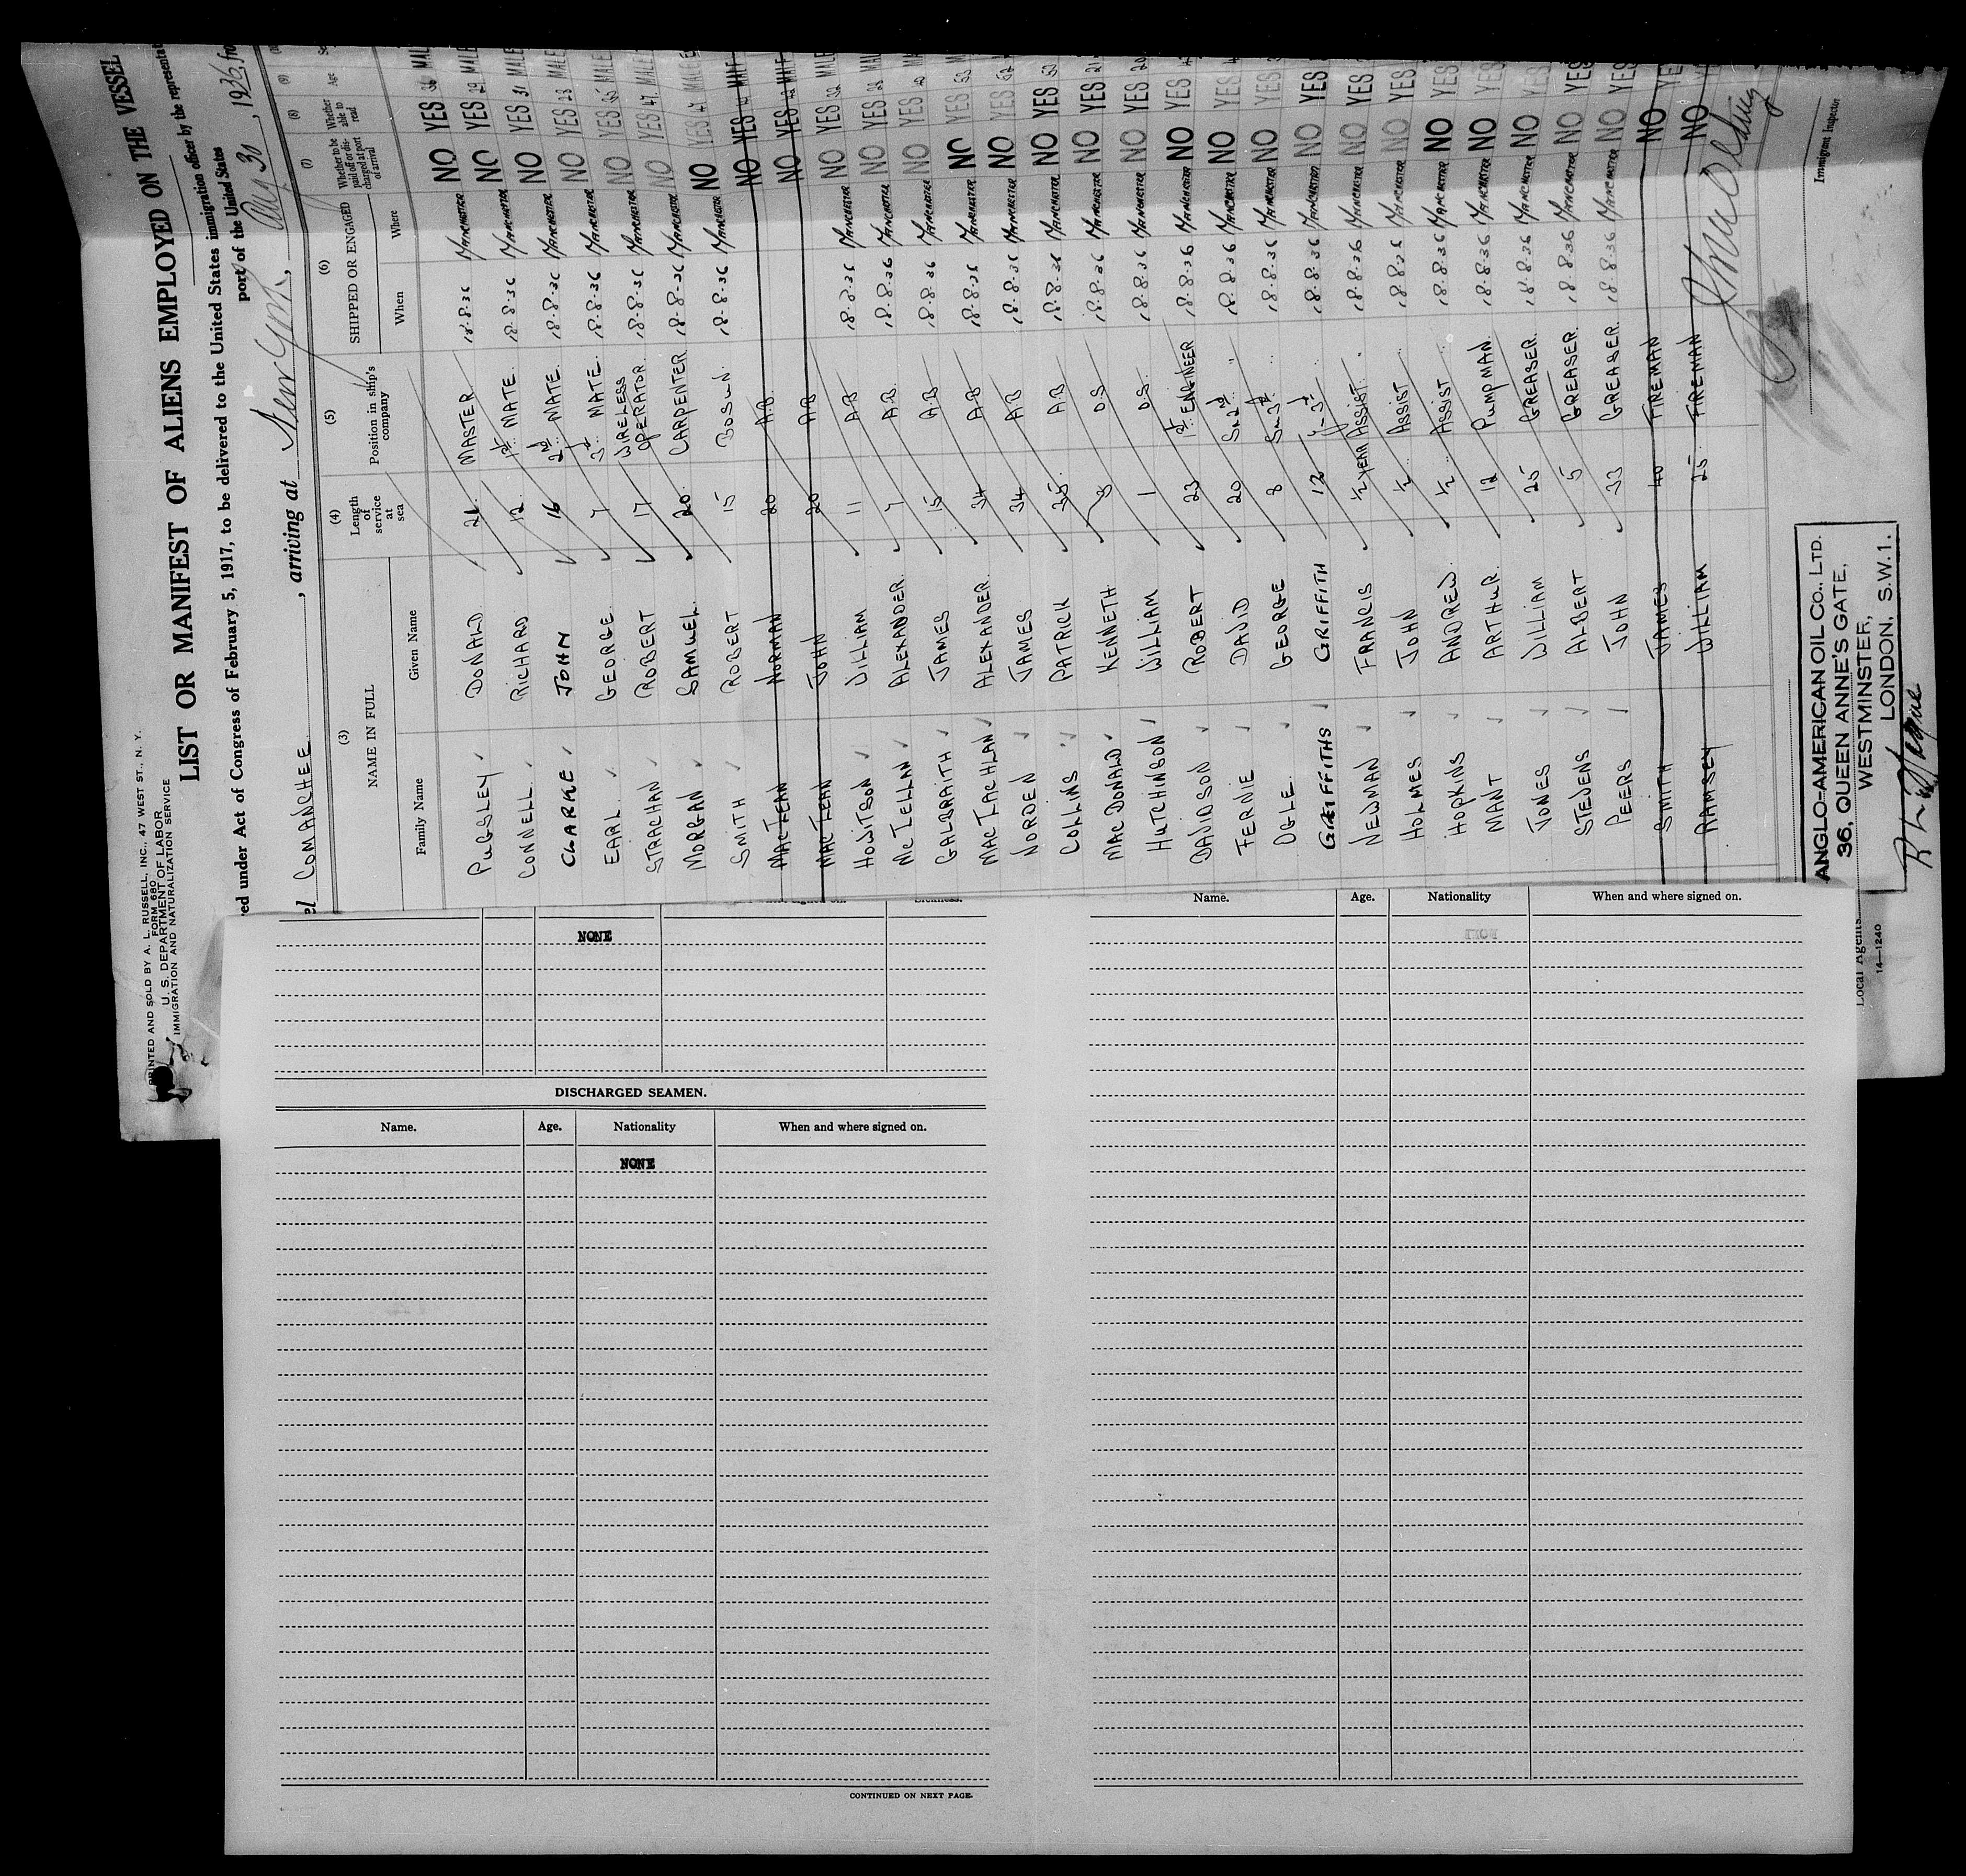 PRINTED AND SOLD BY A. L. RUSSELL, INC., 47 WEST ST., N. Y.
FORM 680
U. S. DEPARTMENT OF LABOR
IMMIGRATION AND NATURALIZATION SERVICE
LIST OR MANIFEST OF ALIENS EMPLOYED ON THE VESSEL
ed under Act of Congress of February 5, 1917, to be delivered to the United States immigration officer by the representat
port of the United States
el COMANCHEE, arriving at New York, Aug 30, 1936, fro
(3) (4) (5) (6) (7) (8) (9)
NAME IN FULL Length of service at sea Position in ship's company SHIPPED OR ENGAGED Whether to be paid off or discharged at port of arrival Whether able to read Age
Family Name Given Name When Where
PUGSLEY DONALD 21 MASTER 18-8-36 MANCHESTER NO YES 36 MALE
CONNELL RICHARD 12 1st MATE 18-8-36 MANCHESTER NO YES 29 MALE
CLARKE JOHN 16 2nd MATE 18-8-36 MANCHESTER NO YES 31 MALE
EARL GEORGE 7 3rd MATE 18-8-36 MANCHESTER NO YES 23 MALE
STRACHAN ROBERT 17 WIRELESS OPERATOR 18-8-36 MANCHESTER NO YES 35 MALE
MORGAN SAMUEL 20 CARPENTER 18-8-36 MANCHESTER NO YES 47 MALE
SMITH ROBERT 15 BOSUN 18-8-36 MANCHESTER NO YES 47 MALE
MACLEAN NORMAN 20 A.B. NO YES MALE
MACLEAN JOHN 20 A.B NO YES MALE
HOWITSON WILLIAM 11 A.B 18-8-36 MANCHESTER NO YES 32 MALE
MCLELLAN ALEXANDER 7 A.B. 18-8-36 MANCHESTER NO YES MAL
GALBRAITH JAMES 15 A.B 18-8-36 MANCHESTER NO YES MA
MACLACHLAN ALEXANDER 34 A.B 18-8-36 MANCHESTER NO YES 53 M
NORDEN JAMES 34 A.B 18-8-36 MANCHESTER NO YES 52
COLLINS PATRICK 35 A.B 18-8-36 MANCHESTER NO YES 52
MACDONALD KENNETH 3 O.S 18-8-36 MANCHESTER NO YES 21
HUTCHINSON WILLIAM 1 O.S. 18-8-36 MANCHESTER NO YES 20
DAVIDSON ROBERT 23 1st ENGINEER 18-8-36 MANCHESTER NO YES
FERNIE DAVID 20 Sn 2nd " 18-8-36 MANCHESTER NO YES
OGLE GEORGE 8 18-8-36 MANCHESTER NO YES
GRIFFITHS GRIFFITH 12 18-8-36 MANCHESTER NO YES
NEWMAN FRANCIS ½ YEAR ASSIST. 18-8-36 MANCHESTER NO YES
HOLMES JOHN ½ ASSIST 18-8-36 MANCHESTER NO YES
HOPKINS ANDREW ½ ASSIST 18-8-36 MANCHESTER NO YES
MANT ARTHUR 12 PUMPMAN 18-8-36 MANCHESTER NO YES
JONES WILLIAM 25 GREASER 18-8-36 MANCHESTER NO YES
STEVENS ALBERT 5 GREASER 18-8-36 MANCHESTER NO YES
PEERS JOHN 33 GREASER 18-8-36 MANCHESTER NO YES
SMITH JAMES 40 FIREMAN NO YE
RAMSEY WILLIAM 25 FIREMAN NO
Immigrant Inspector
ANGLO-AMERICAN OIL Co., LTD.
36, QUEEN ANNE'S GATE,
WESTMINSTER,
LONDON, S.W.1.
Local Agents
14—1240
NONE
DISCHARGED SEAMEN.
Name. Age. Nationality When and where signed on.
NONE
CONTINUED ON NEXT PAGE.
Name. Age. Nationality When and where signed on.